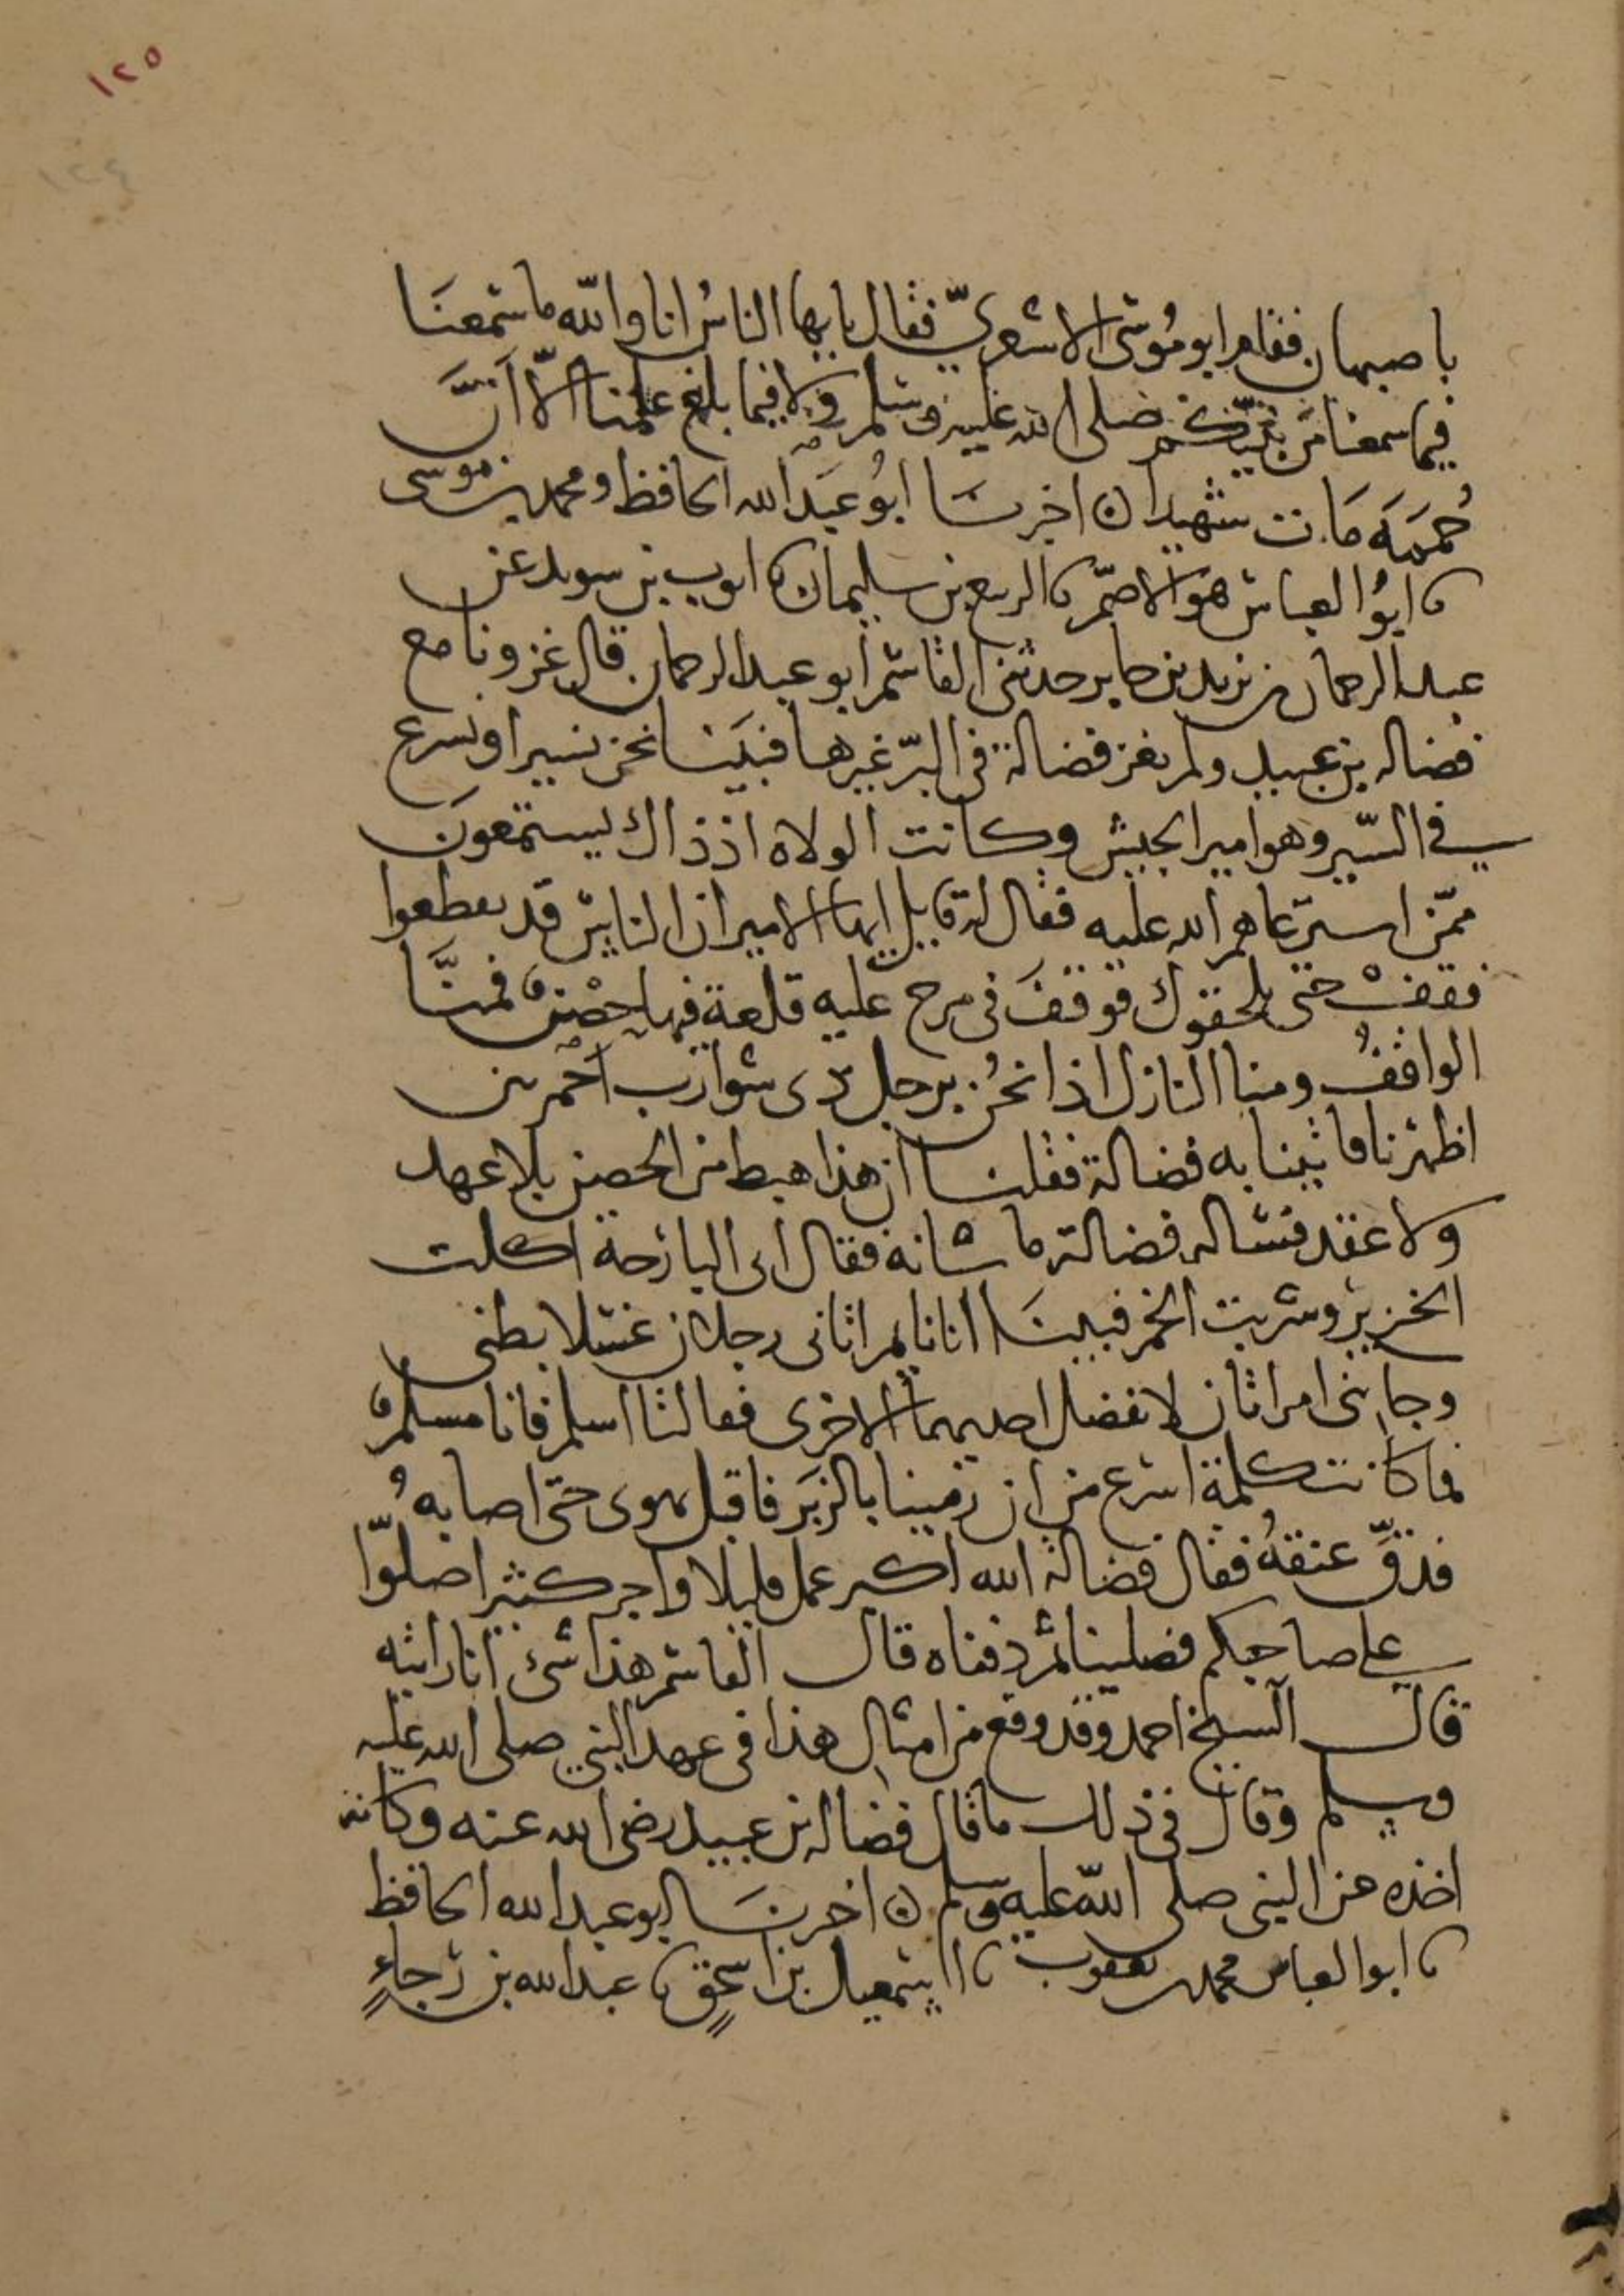 ١٢٥
١٢٤
باصبهان فقام ابو مُوسَى الاشعريّ فقال يايها الناسُ انا والله ما سَمعنَا
فيما سمعنا من نبيّكم صلى الله عليه وسَلم ولا فيما بلغ علمنا الّا انَّ
حُمَمَة مَات شهيدا ن اخبرنَا ابُو عبَد الله الحافظ ومحمد بن موسى
نا ابُو العباس هوَ الاصَمّ نا الربيع بن سليمان نا ايوب بن سويد عن
عبد الرحمان بن يزيد بن جابر حدثنى القاسم ابو عبد الرحمان قال غزونا مع
فضاله بن عبيد ولم يغز فضالة فى البرّ غيرها فبَينَا نحن نسير او نسرع
في السّير وهو امير الجيش وكانت الولاة اذ ذاك يستمعونَ
ممّن استرعاهم الله عليه فقال له قايل ايها الامير ان الناس قد تقطعوا
فقفْ حتى يلحقوك فوقفَ فى مرج عليه قلعة فيها حصْن فمنَّا
الواقفُ ومنا النازل اذا نحُن برجل ذى شوارب احمر بين
اظهرنا فاتينا به فضالة فقلنا ان هذا هبط من الحصن بلا عهد
ولا عقد فسَاله فضالة ما شانه فقال انى البارحة اكلت
الخنزير وشربت الخمر فبينَا انا نايم اتانى رجلان غسَلا بطنى
وجاءنى امراتان لا تفضل احديهما الاخرى فقالتا اسلم فانا مسلم
فما كانت كلمة اسَرع من ان رمينا بالزبَر فاقبل يهوى حتى اصابهُ
فدقّ عنقهُ فقال فضالة الله اكبر عمل قليلا واجر كثيرا صلوّا
على صاحبكم فصلينا ثم دفناه قال القاسم هذا شئ انا رايته
قال الشيخ احمد وقد وقع من امثال هذا فى عهد النبي صلى الله عليه
وسلم وقال فى ذلك ما قال فضاله بن عبيد رضى الله عنه وكانه
اخذه عن النبى صلى الله عليه وسلم ن اخبرنَا ابو عبد الله الحافظ
نا ابو العباس محمد بن يعقوب نا اسمَعيل بن اسحٰق نا عبد الله بن رَجاءٍ